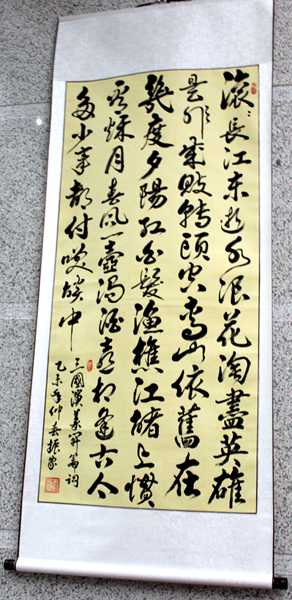 滚滚長江东逝水浪花淘盡英雄
是非成敗轉頭空青山依舊在
幾度夕陽红白髮漁樵江渚上慣
看秋月春风一壺濁酒喜相逢古今
多少事都付笑談中
三國演義開篇词
乙未年仲春振家